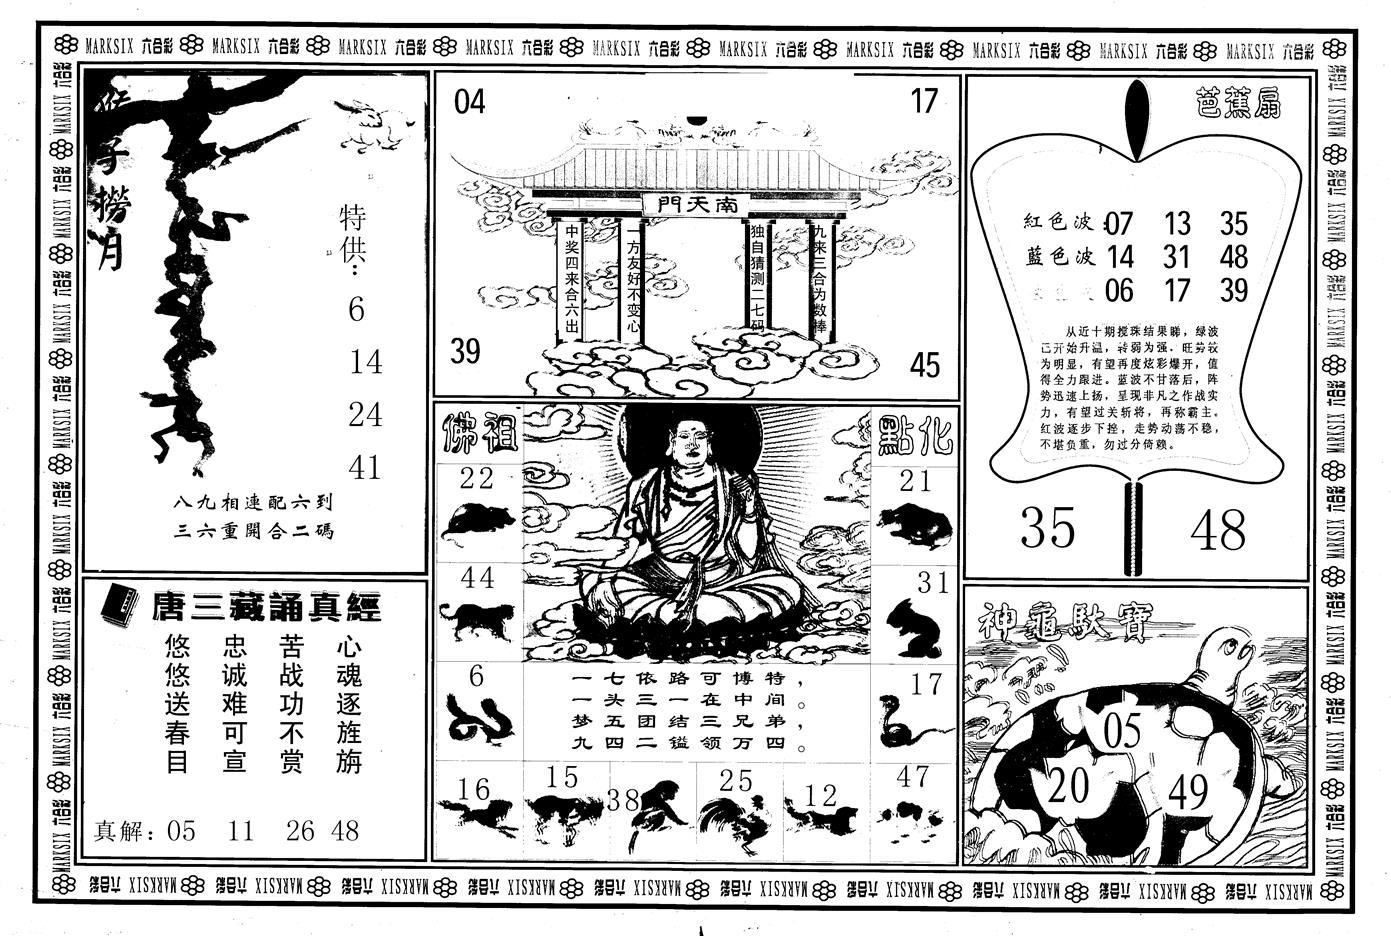 MARKSIX 六合彩 MARKSIX 六合彩 MARKSIX 六合彩 MARKSIX 六合彩 MARKSIX 六合彩 MARKSIX 六合彩 MARKSIX 六合彩 MARKSIX 六合彩 MARKSIX 六合彩 MARKSIX 六合彩
猴子撈月
特供：
6
14
24
41
八九相連配六到
三六重開合二碼
04
17
南天門
中奖四来合六出
一方友好不变心
独自猜测二七码
九来三合为数棒
39
45
芭蕉扇
紅色波：07 13 35
藍色波 14 31 48
06 17 39
从近十期搅珠结果睇，绿波
已开始升温，转弱为强．旺势较
为明显，有望再度炫彩爆开，值
得全力跟进。蓝波不甘落后，阵
势迅速上扬，呈现非凡之作战实
力，有望过关斩将，再称霸主。
红波逐步下挫，走势动荡不稳，
不堪负重，勿过分倚赖。
35
48
佛祖
點化
22
21
44
31
6
17
一七依路可博特，
一头三一在中间。
梦五团结三兄弟，
九四二镒领万四。
16
15
38
25
12
47
唐三藏誦真經
心魂逐旌旃
苦战功不赏
忠诚难可宣
悠悠送春目
真解：05 11 26 48
神龜馱寶
05
20
49